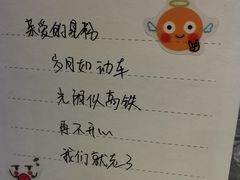 亲爱的见粉
岁月如动车
光阴似高铁
再不开心
我们就老了